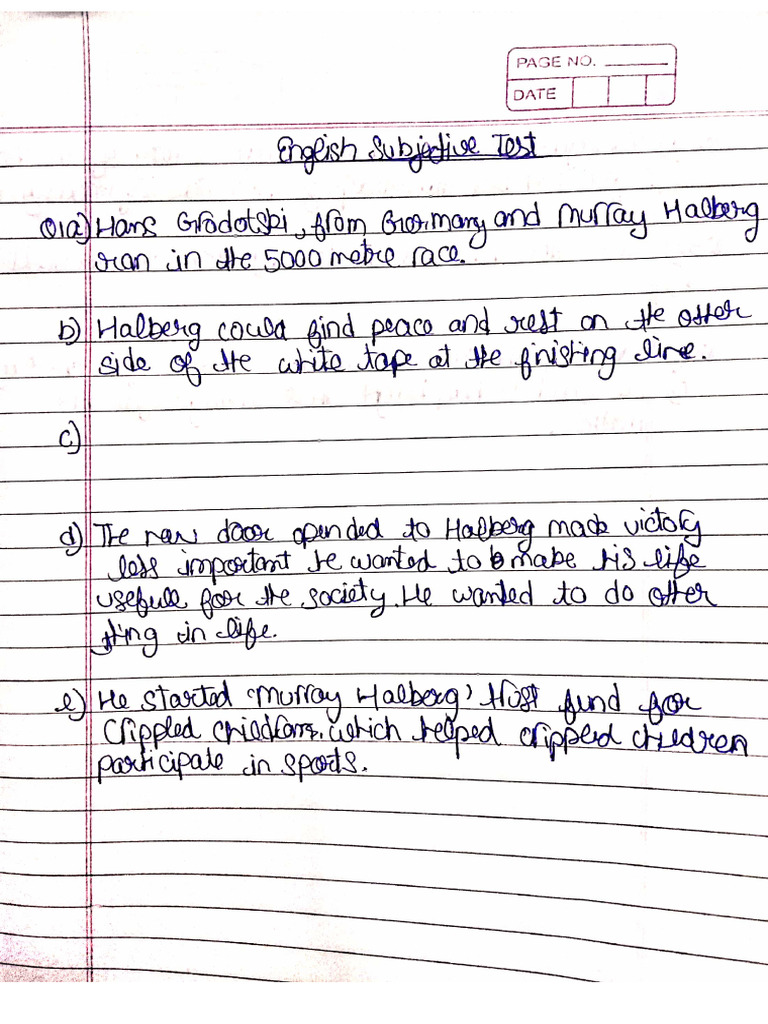 PAGE NO.
DATE
English Subjective Test
Q1a) Hans Grodotski, from Germany and Murray Halberg
ran in the 5000 metre race.
b) Halberg could find peace and rest on the other
side of the white tape at the finishing line.
c)
d) The new door opended to Halberg made victory
less important he wanted to make his life
usefull for the society. He wanted to do other
thing in life.
e) He started 'Murray Halberg' fund for
Crippled which helped crippled children
participate in sports.